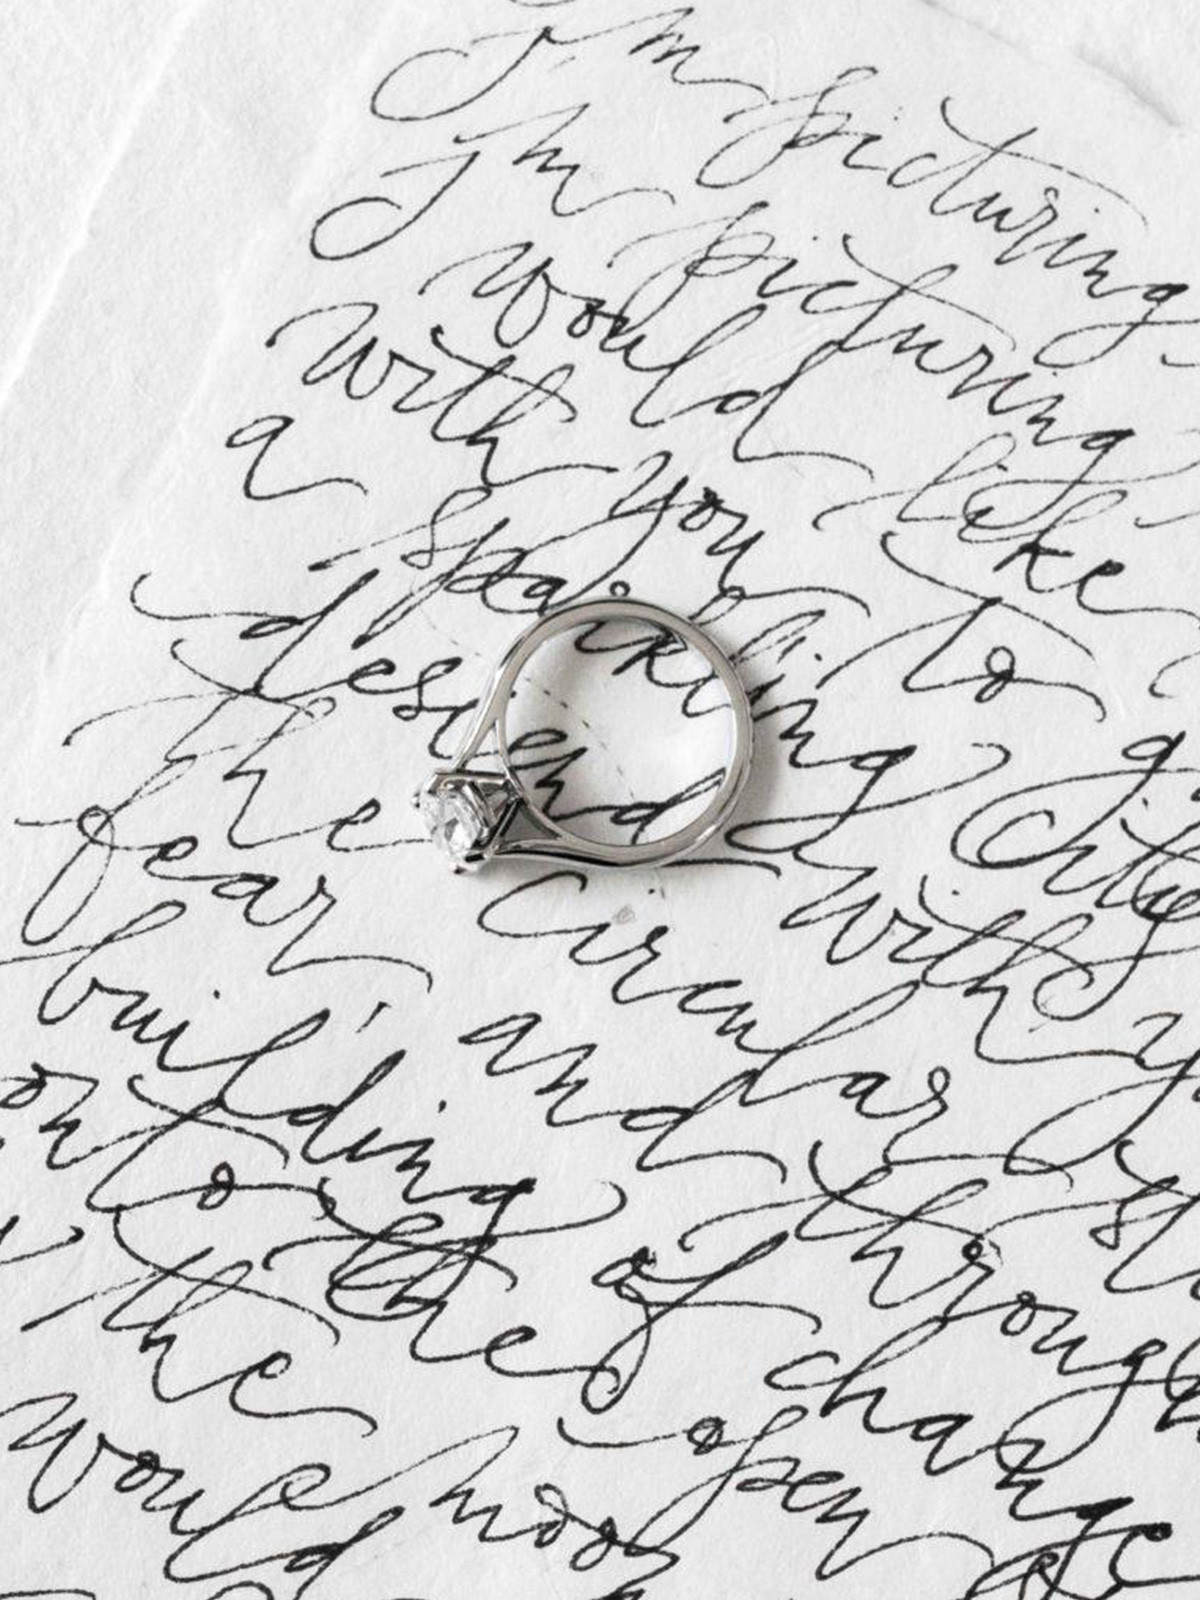 I'm picturing
I'm picturing
would like
with you to
a sparkling City
descend with
the Circular
fear, and through
building of change
on to the open
the moon
would